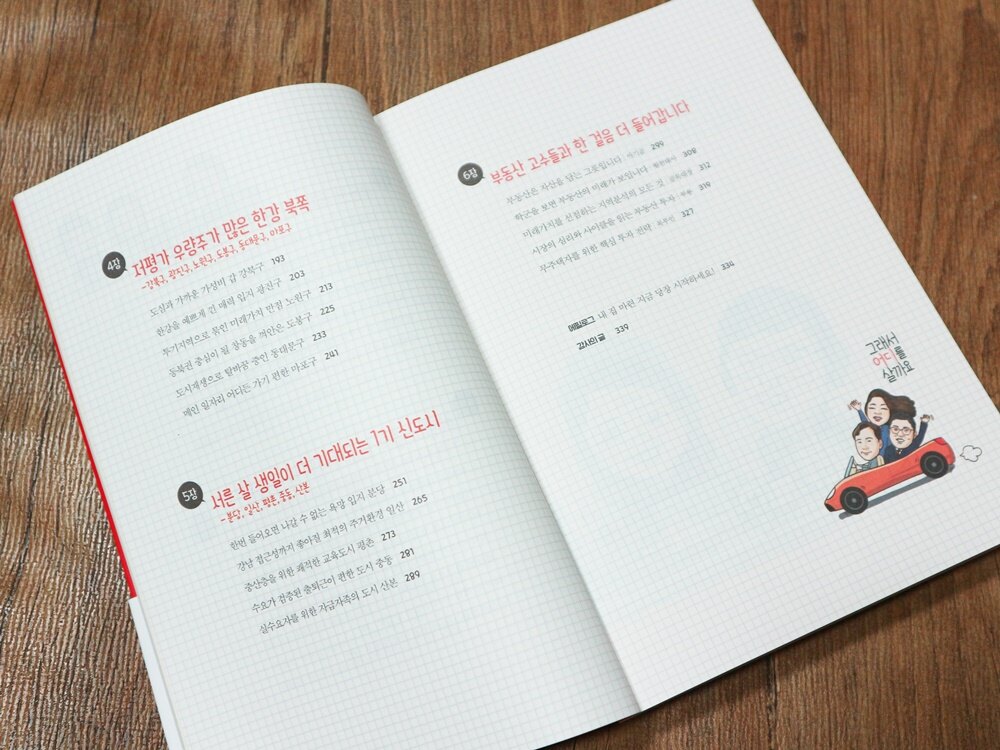 4장
저평가 우량주가 많은 한강 북쪽
-강북구, 광진구, 노원구, 도봉구, 동대문구, 마포구
도심과 가까운 가성비 갑 강북구 193
한강을 예쁘게 낀 매력 입지 광진구 203
투기지역으로 묶인 미래가치 만점 노원구 213
동북권 중심이 될 창동을 껴안은 도봉구 225
도시재생으로 탈바꿈 중인 동대문구 233
메인 일자리 어디든 가기 편한 마포구 241
5장
서른 살 생일이 더 기대되는 1기 신도시
-분당, 일산, 평촌, 중동, 산본
한번 들어오면 나갈 수 없는 욕망 입지 분당 251
강남 접근성까지 좋아질 최적의 주거환경 일산 265
중산층을 위한 쾌적한 교육도시 평촌 273
수요가 검증된 출퇴근이 편한 도시 중동 281
실수요자를 위한 자급자족의 도시 산본 289
6장
부동산 고수들과 한 걸음 더 들어갑니다
부동산은 자산을 담는 그릇입니다 299
학군을 보면 부동산의 미래가 보입니다 308
미래가치를 선점하는 지역분석의 모든 것 312
시장의 심리와 사이클을 읽는 부동산 투자 319
무주택자를 위한 핵심 투자 전략 327
에필로그 내 집 마련 지금 당장 시작하세요! 334
감사의 글 339
그래서
어디를
살까요